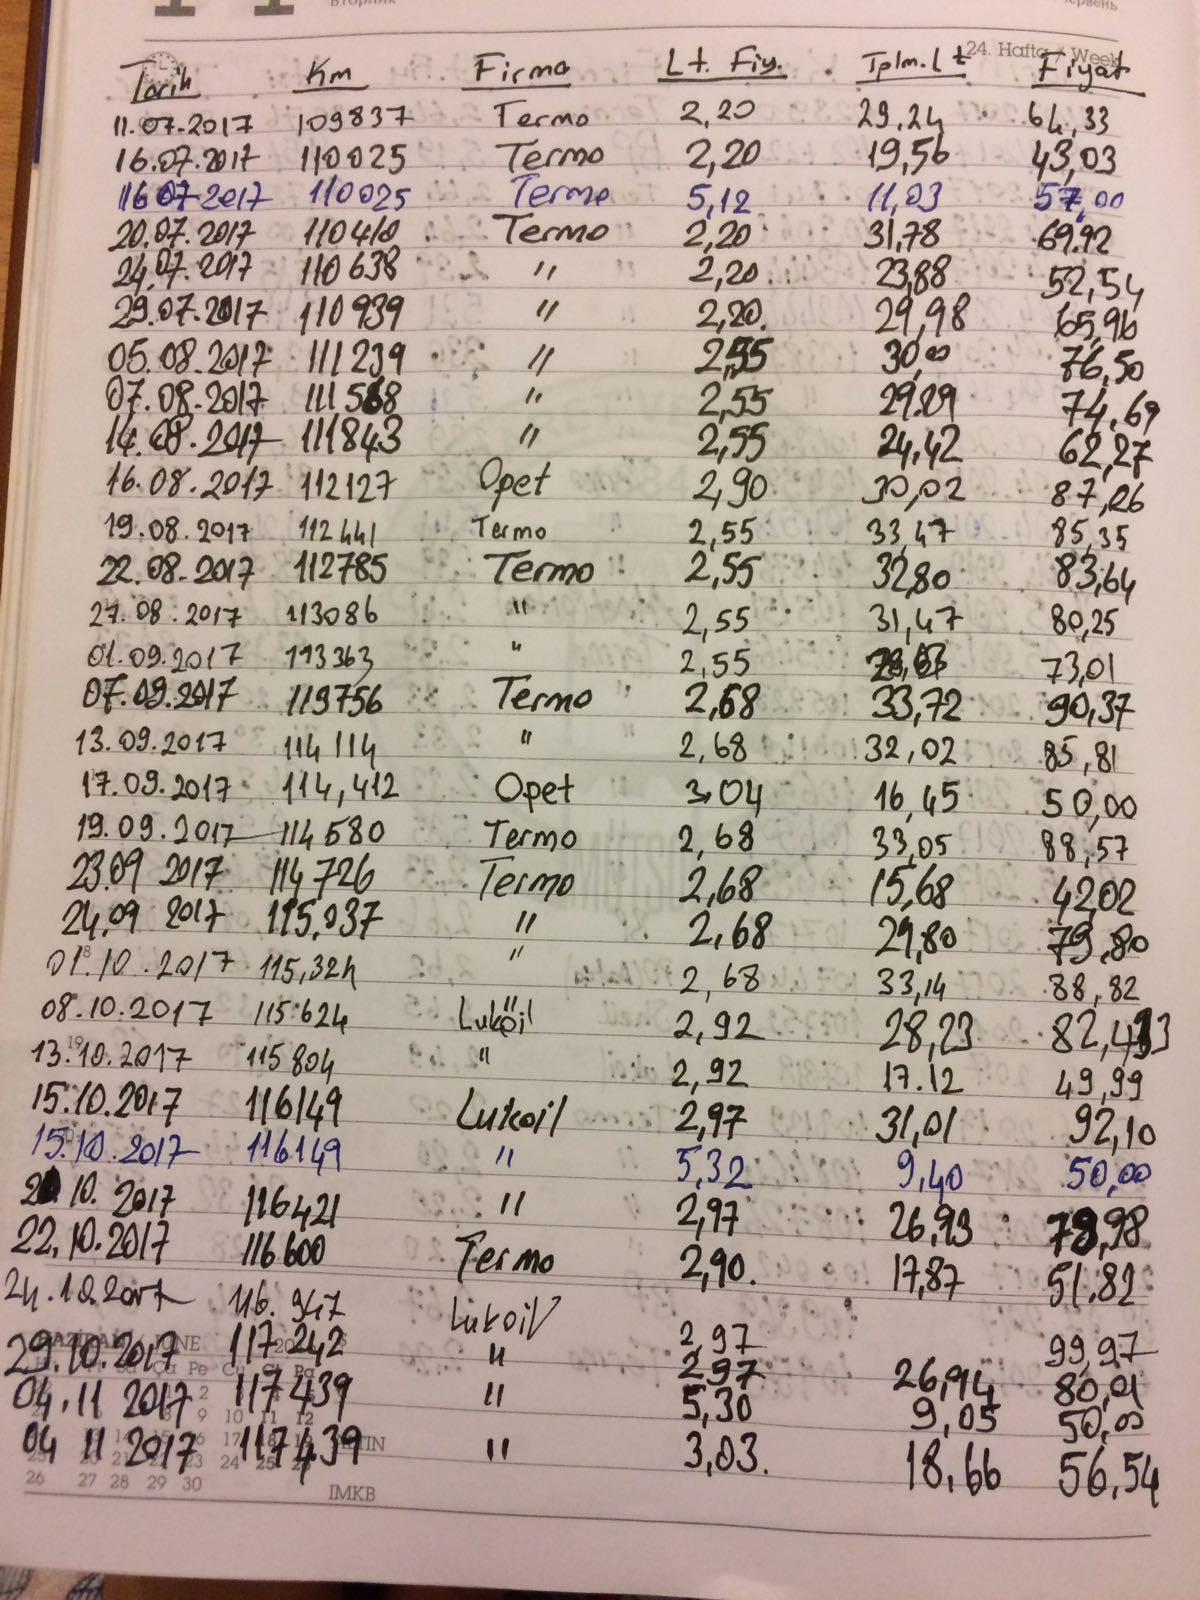 Вторник
24. Hafta / Week
Tarih Km Firma Lt. Fiy. Tplm. Lt Fiyat
11.07.2017 109837 Termo 2,20 29,24 64,33
16.07.2017 110025 Termo 2,20 19,56 43,03
16.07.2017 110025 Termo 5,12 11,03 57,00
20.07.2017 110410 Termo 2,20 31,78 69.92
24.07.2017 110638 " 2,20 23,88 52,54
29.07.2017 110939 " 2,20. 29,98 65,96
05.08.2017 111239 " 2,55 30,00 76,50
07.08.2017 111568 " 2,55 29.29 74,69
14.08.2017 111843 " 2,55 24,42 62,27
16.08.2017 112127 Opet 2,90 30,02 87,06
19.08.2017 112441 Termo 2,55 33,47 85,35
22.08.2017 112785 Termo 2,55 32,80 83,64
27.08.2017 113086 " 2,55 31,47 80,25
01.09.2017 113363 " 2,55 73,01
07.09.2017 113756 Termo 2,68 33,72 90,37
13.09.2017 114114 " 2,68 32,02 85,81
17.09.2017 114,412 Opet 3,04 16,45 50,00
19.09.2017 114580 Termo 2,68 33,05 88,57
23.09 2017 114726 Termo 2,68 15,68 42,02
24.09 2017 115,037 " 2,68 29,80 79,80
01.10.2017 115,324 " 2,68 33,14 88,82
08.10.2017 115624 Lukoil 2,92 28,23 82,43
13.10.2017 115804 " 2,92 17.12 49,99
15.10.2017 116149 Lukoil 2,97 31,01 92,10
15.10.2017 116149 " 5,32 9,40 50,00
10. 2017 116421 " 2,97 26,93 79,98
22.10.2017 116600 Termo 2,90. 17,87 51.82
24.10.2017 116.947 Lukoil 2,97 99,97
29.10.2017 117242 " 2,97 26,94 80,01
04.11 2017 117439 " 5,30 9,05 50,00
04 11 2017 117439 " 3,03. 18,66 56,54
IMKB